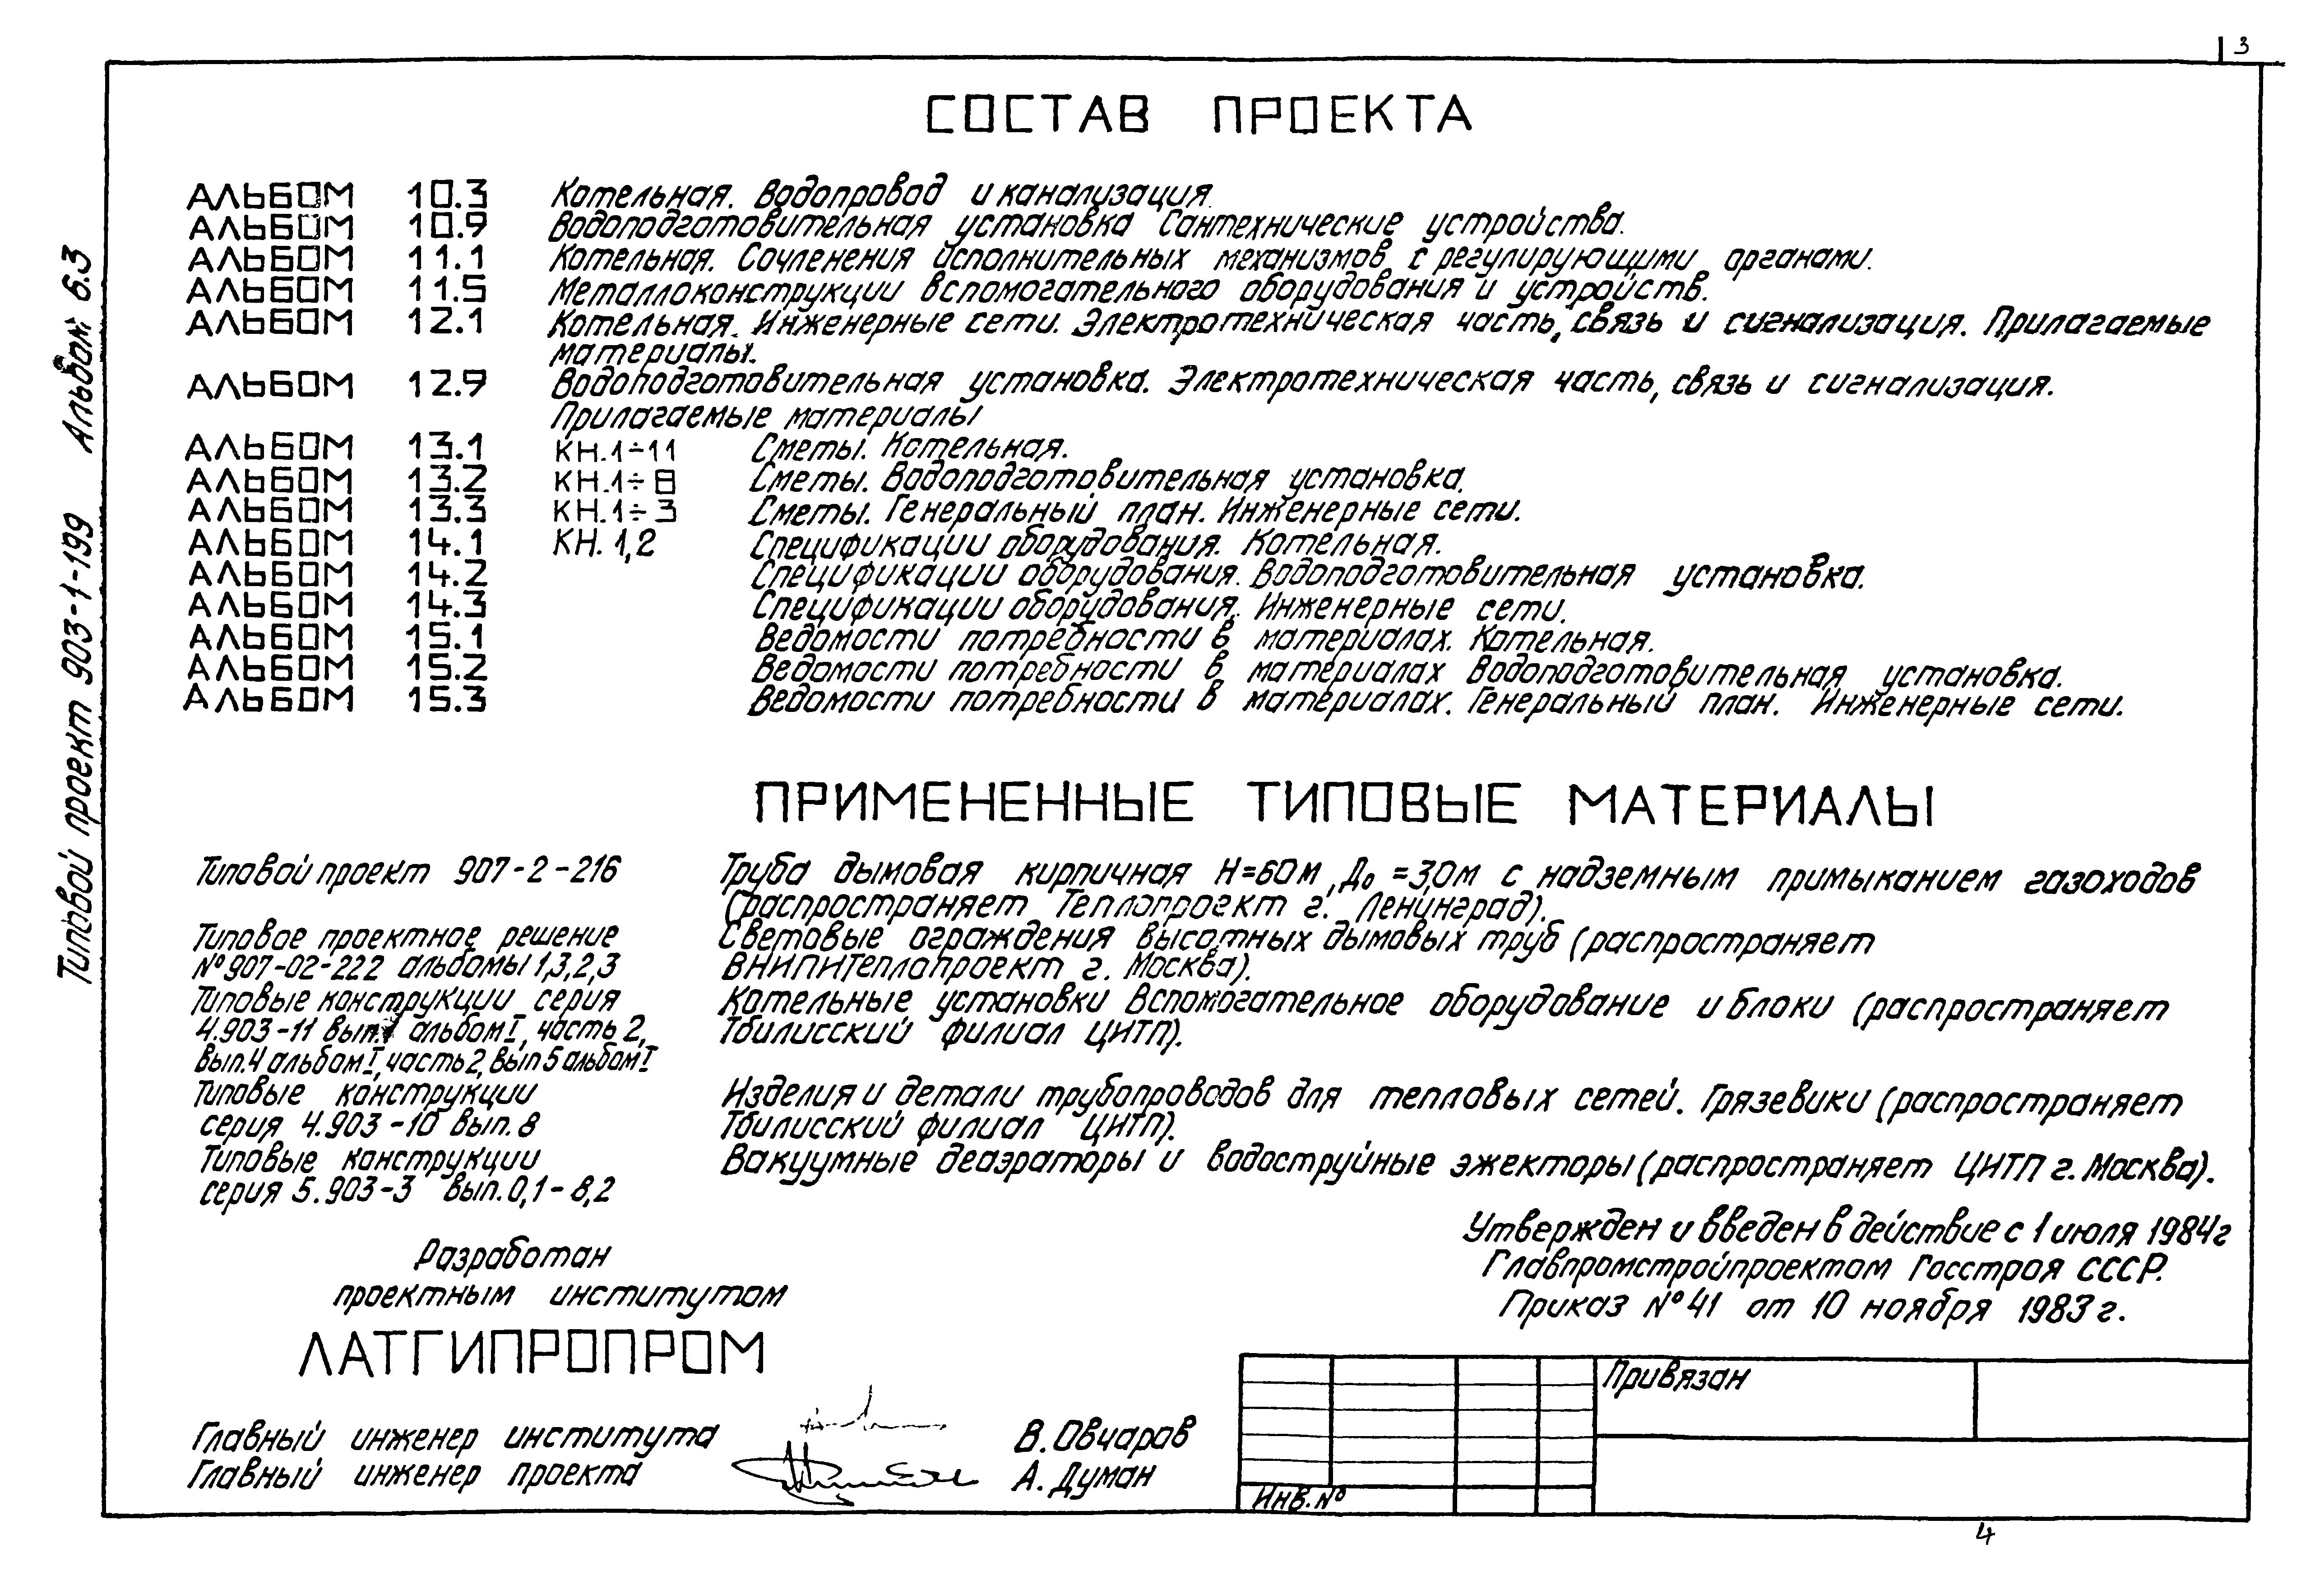 3
СОСТАВ ПРОЕКТА
АЛЬБОМ 10.3 Котельная. Водопровод и канализация.
АЛЬБОМ 10.9 Водоподготовительная установка Сантехнические устройства.
АЛЬБОМ 11.1 Котельная. Сочленения исполнительных механизмов с регулирующими органами.
АЛЬБОМ 11.5 Металлоконструкции вспомогательного оборудования и устройств.
АЛЬБОМ 12.1 Котельная. Инженерные сети. Электротехническая часть, связь и сигнализация. Прилагаемые
материалы.
АЛЬБОМ 12.9 Водоподготовительная установка. Электротехническая часть, связь и сигнализация.
Прилагаемые материалы
АЛЬБОМ 13.1 КН.1÷11 Сметы. Котельная.
АЛЬБОМ 13.2 КН.1÷8 Сметы. Водоподготовительная установка.
АЛЬБОМ 13.3 КН.1÷3 Сметы. Генеральный план. Инженерные сети.
АЛЬБОМ 14.1 КН. 1,2 Спецификации оборудования. Котельная.
АЛЬБОМ 14.2 Спецификации оборудования. Водоподготовительная установка.
АЛЬБОМ 14.3 Спецификации оборудования. Инженерные сети.
АЛЬБОМ 15.1 Ведомости потребности в материалах. Котельная.
АЛЬБОМ 15.2 Ведомости потребности в материалах Водоподготовительная установка.
АЛЬБОМ 15.3 Ведомости потребности в материалах. Генеральный план. Инженерные сети.
ПРИМЕНЕННЫЕ ТИПОВЫЕ МАТЕРИАЛЫ
Типовой проект 907-2-216 Труба дымовая кирпичная Н=60м, До=3,0м с надземным примыканием газоходов
(распространяет Теплопроект г. Ленинград).
Типовое проектное решение Световые ограждения высотных дымовых труб (распространяет
№907-02-222 альбомы 1,3,2,3 ВНИПИТеплопроект г. Москва).
Типовые конструкции серия Котельные установки Вспомогательное оборудование и блоки (распространяет
4.903-11 вып.1 альбом I, часть 2, Тбилисский филиал ЦИТП).
вып.4 альбом I, часть 2, вып 5 альбом I
Типовые конструкции Изделия и детали трубопроводов для тепловых сетей. Грязевики (распространяет
серия 4.903-10 вып. 8 Тбилисский филиал ЦИТП).
Типовые конструкции Вакуумные деаэраторы и водоструйные эжекторы (распространяет ЦИТП г. Москва).
серия 5.903-3 вып. 0,1-8,2
Утвержден и введен в действие с 1 июля 1984г
Главпромстройпроектом Госстроя СССР.
Приказ №41 от 10 ноября 1983 г.
Разработан
проектным институтом
ЛАТГИПРОПРОМ
Главный инженер института В. Овчаров
Главный инженер проекта А. Думан
Привязан
Инв. №
4
Типовой проект 903-1-199 Альбом 6.3